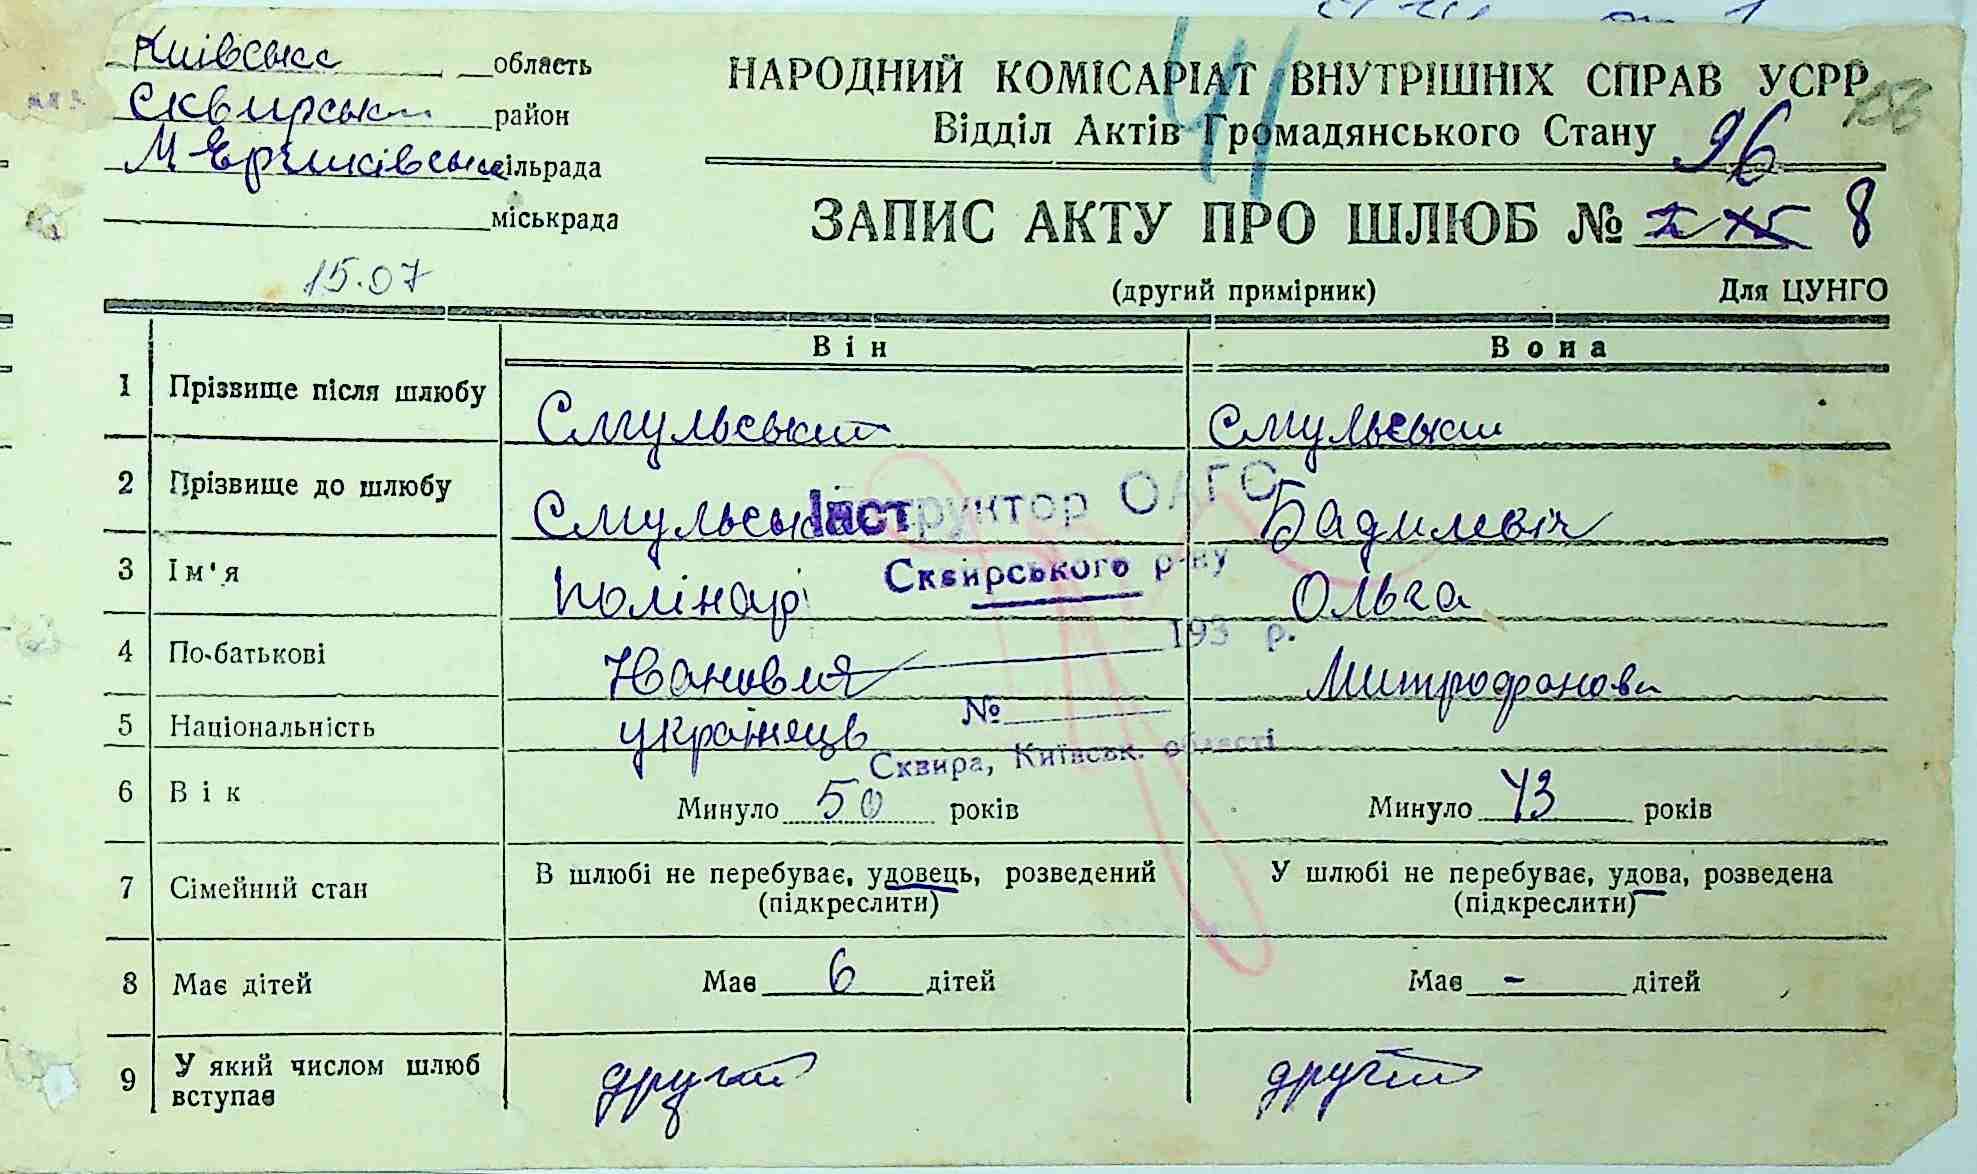 Київська область
Сквирський район
М Єрчиківська сільрада
міськрада
НАРОДНИЙ КОМІСАРІАТ ВНУТРІШНІХ СПРАВ УСРР
41
Відділ Актів Громадянського Стану
96
ЗАПИС АКТУ ПРО ШЛЮБ № 8
15.07
(другий примірник) Для ЦУНГО
Він Вона
1 Прізвище після шлюбу Смульський Смульськи
2 Прізвище до шлюбу Смульськ Бадилевіч
Інструктор ОАГС
Сквирського р-ну
3 Ім'я Полінар Ольга
193 р.
4 По-батькові Івановия Митрофанови
№
5 Національність українець
Сквира, Київськ. області
6 Вік Минуло 50 років Минуло 43 років
7 Сімейний стан В шлюбі не перебуває, удовець, розведений У шлюбі не перебуває, удова, розведена
(підкреслити) (підкреслити)
8 Має дітей Має 6 дітей Має - дітей
9 У який числом шлюб вступає другий другий